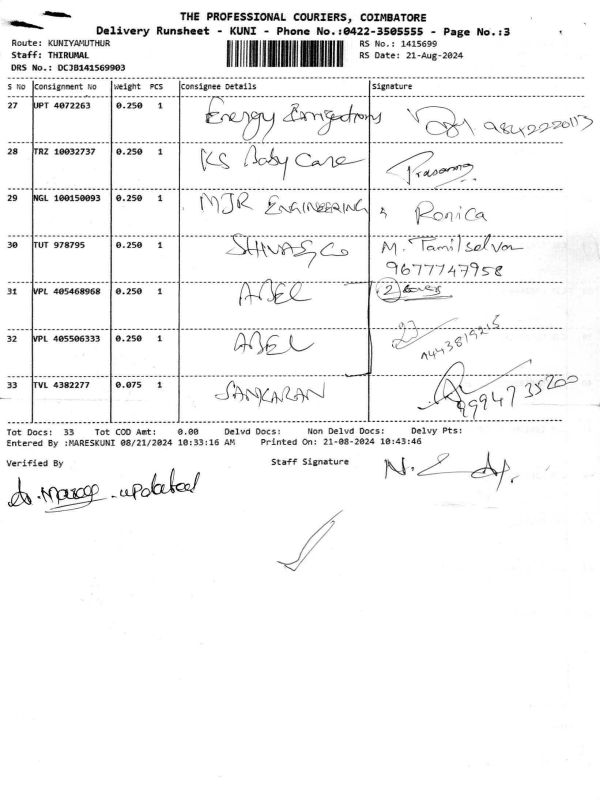 THE PROFESSIONAL COURIERS, COIMBATORE
Delivery Runsheet - KUNI - Phone No.:0422-3505555 - Page No.:3
Route: KUNIYAMUTHUR
RS No.: 1415699
Staff: THIRUMAL
RS Date: 21-Aug-2024
DRS No.: DCJB141569903
S No Consignment No Weight PCS Consignee Details Signature
27 UPT 4072263 0.250 1 Energy 9842220113
28 TRZ 10032737 0.250 1 KS Baby Care Prasanna
29 NGL 100150093 0.250 1 MJR ENGINEERING Ronica
30 TUT 978795 0.250 1 SHIVA & CO M. Tamilselvan
9677747958
31 VPL 405468968 0.250 1 ABEL 2
32 VPL 405506333 0.250 1 ABEL
33 TVL 4382277 0.075 1 SANKARAN 9994735200
Tot Docs: 33 Tot COD Amt: 0.00 Delvd Docs: Non Delvd Docs: Delvy Pts:
Entered By :MARESKUNI 08/21/2024 10:33:16 AM Printed On: 21-08-2024 10:43:46
Verified By Staff Signature
updated